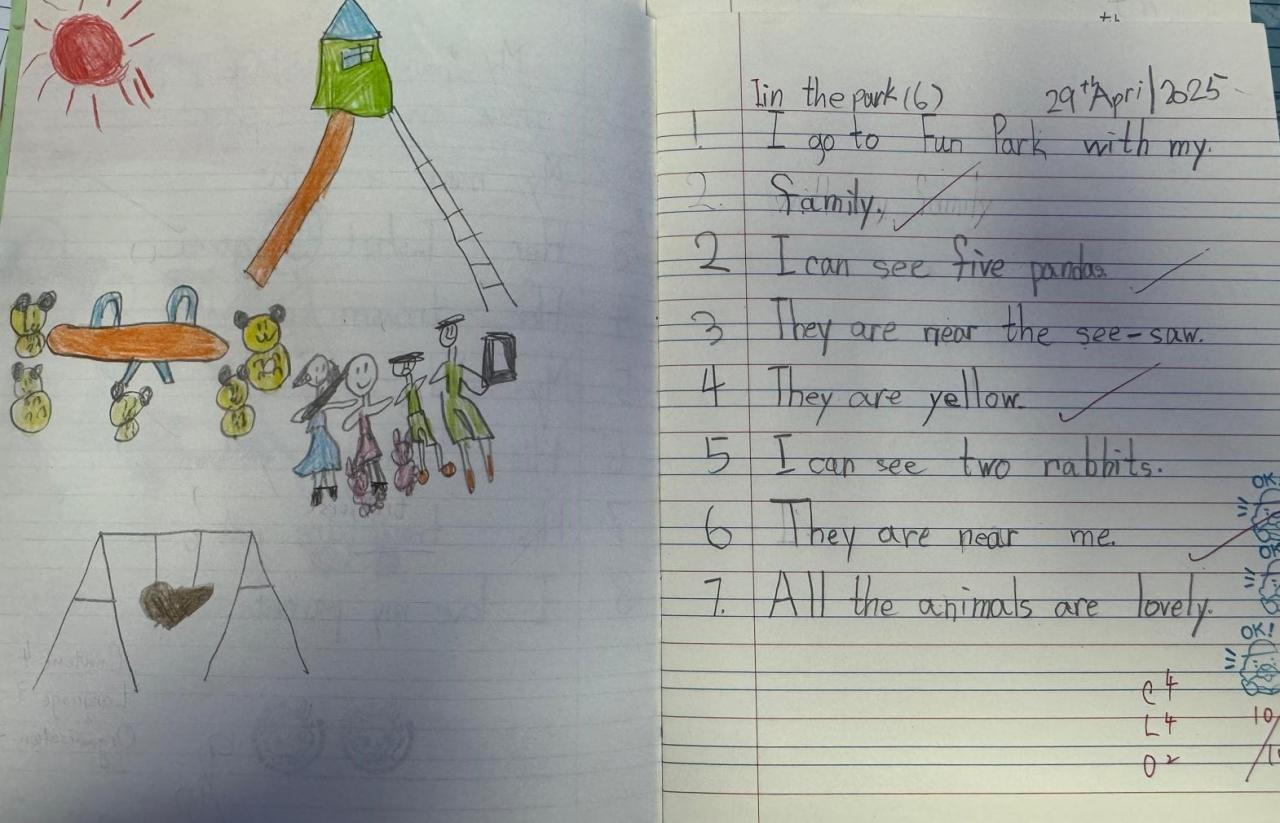 Iin the park (6) 29th April 2025
1. I go to Fun Park with my.
2. family.
2 I can see five pandas.
3 They are near the see-saw.
4 They are yellow.
5 I can see two rabbits.
6 They are near me.
7. All the animals are lovely.
OK!
OK!
OK!
C 4
L 4
O 2
10/10